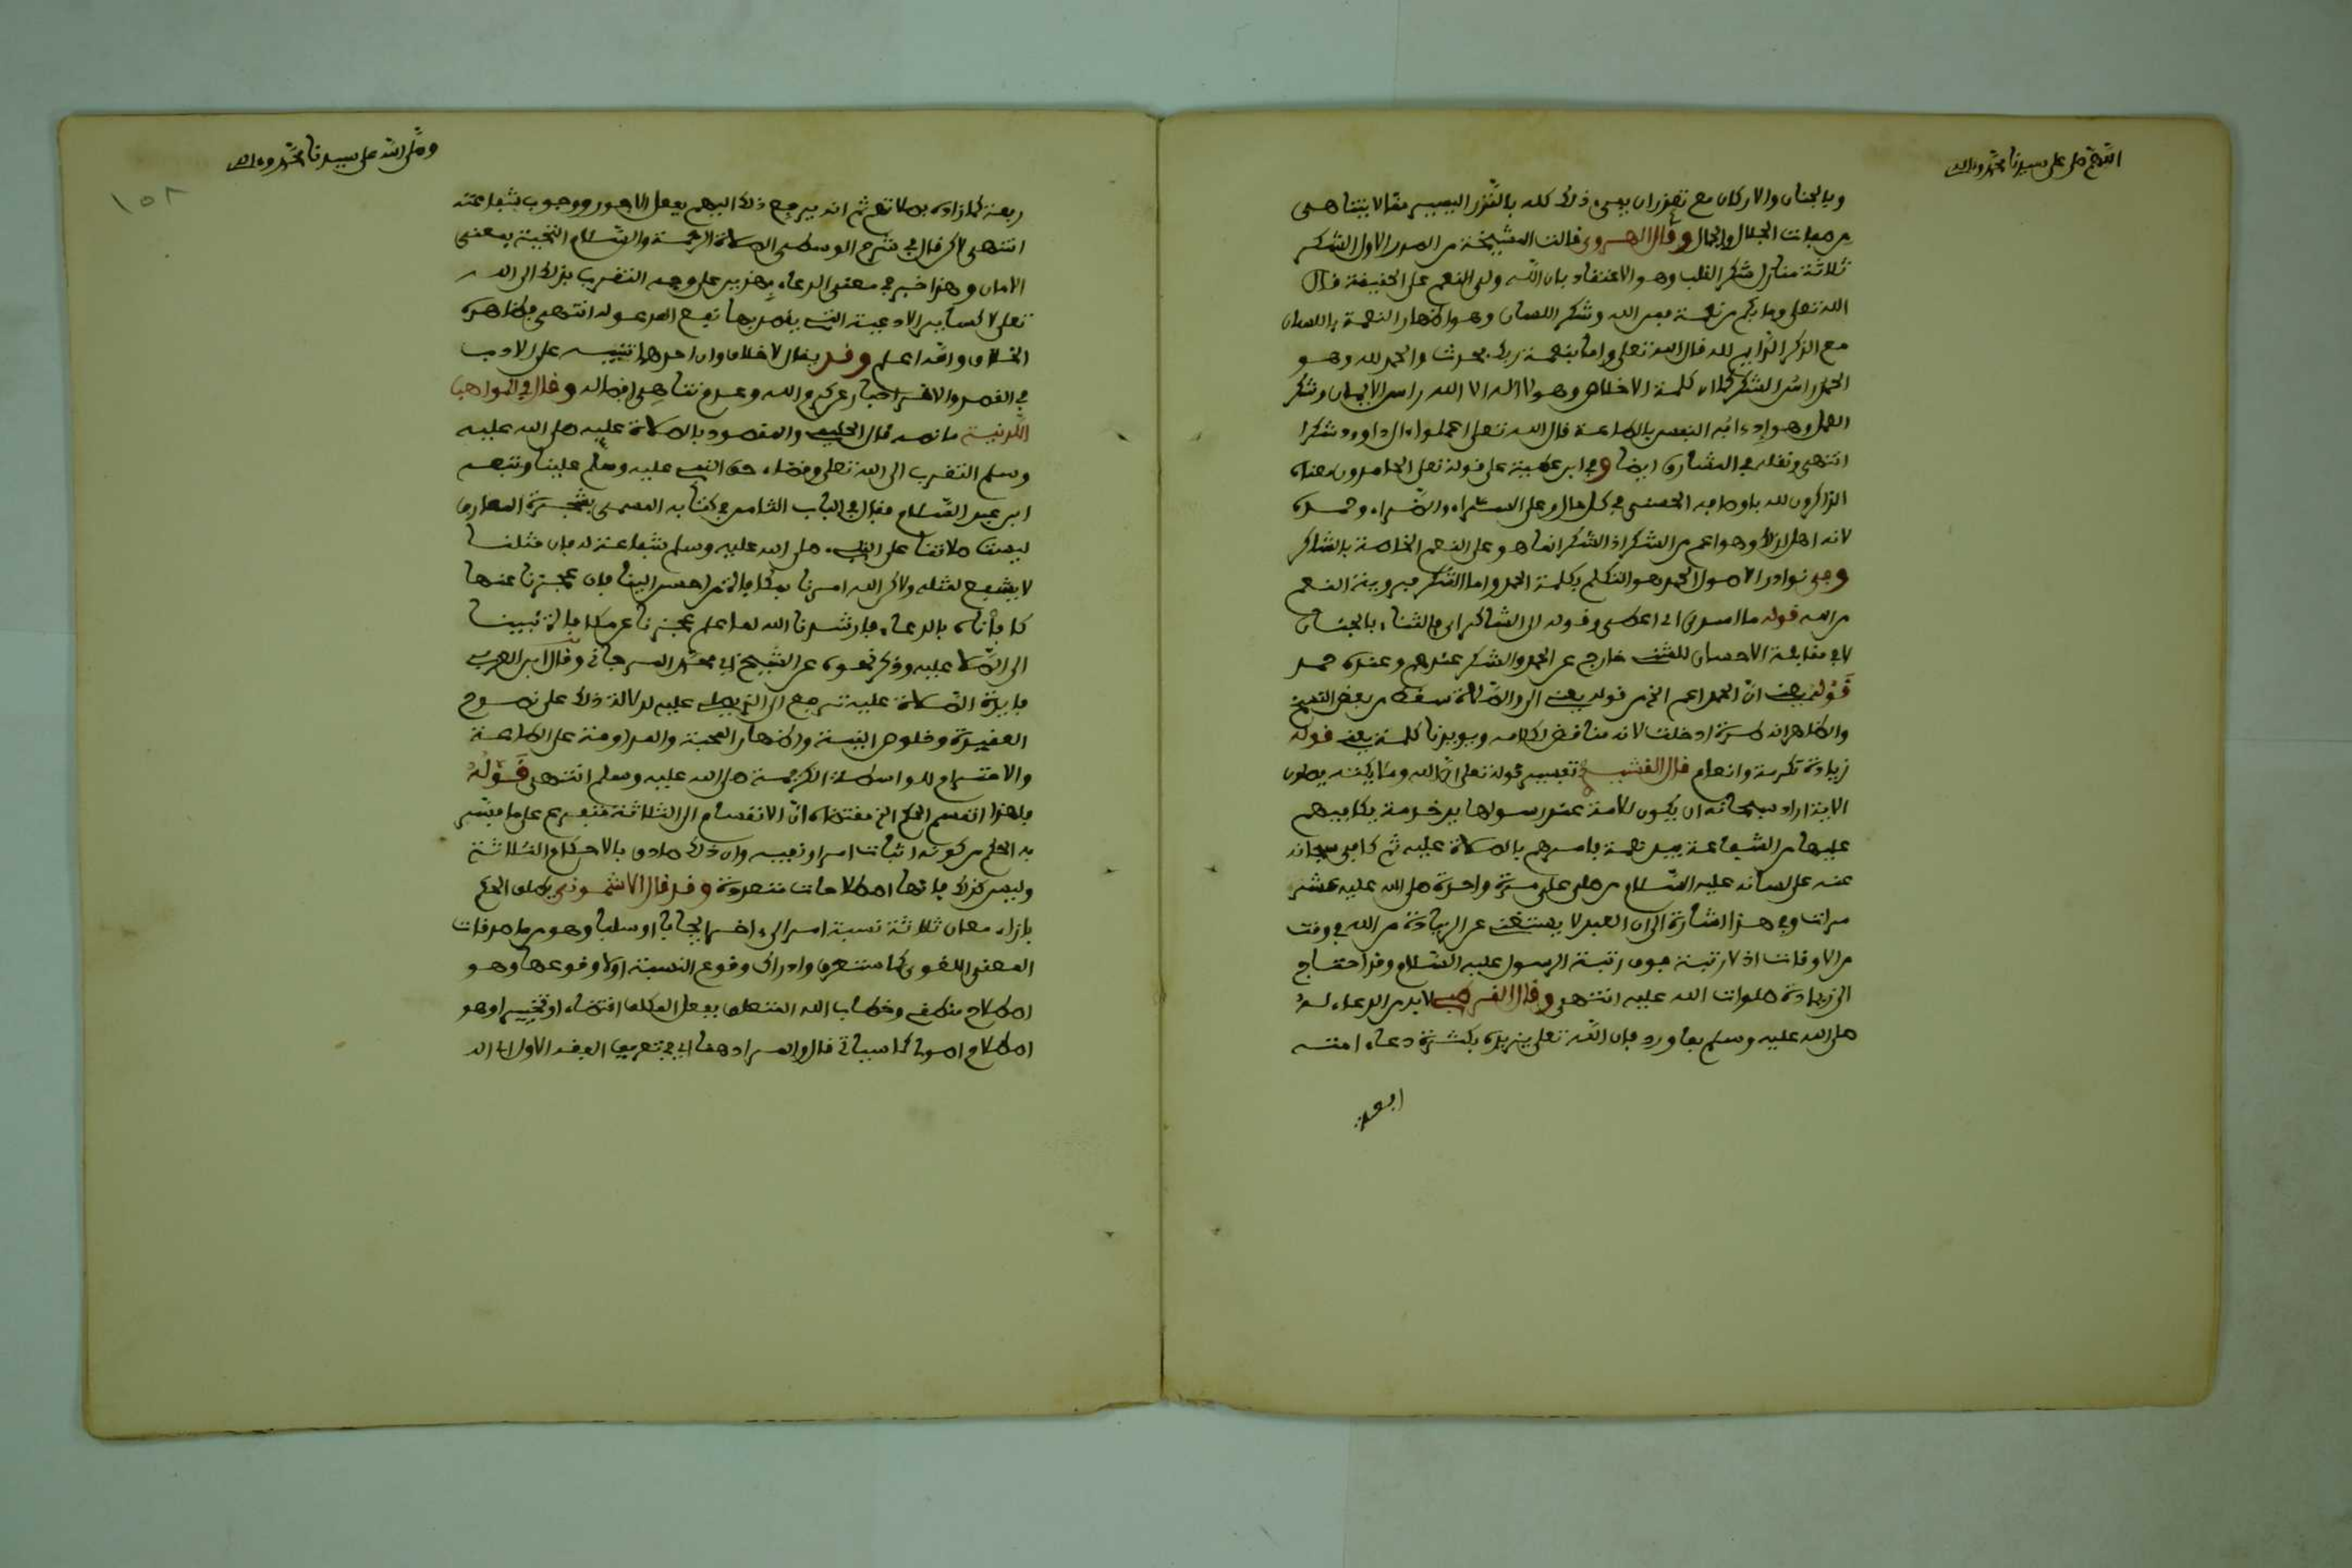 اللهم صل على سيدنا محمد وءاله
وبالجنان والاركان مع تعذر ان يفي ذلك كله بالنزر اليسير مما لا يتناهى
من صفات الجلال والجمال وقال الهروي قالت المشيخة من الصدر الاول الشكر
ثلاثة منازل شكر القلب وهو الاعتقاد بان الله ولي النعم على الحقيقة قال
الله تعلى وما بكم من نعمة فمن الله وشكر اللسان وهو اظهار النعمة باللسان
مع الذكر الدايم لله قال الله تعلى واما بنعمة ربك فحدث والحمد لله وهو
الحمد راس الشكر كما ان كلمة الاخلاص وهو لا اله الا الله راس الايمان وشكر
العمل وهو إدءاب النفس بالطاعة قال الله تعلى اعملوا ءال داوود شكرا
انتهى ونقله في المشارق ايضا وفي ابن عطية على قوله تعلى الحامدون معناه
الذاكرون لله باوصافه الحسنى في كل حال وعلى السراء والضراء وحمده
لانه اهل لذلك وهو اعم من الشكر اذ الشكر انما هو على النعم الخاصة بالشاكر
وفي نوادر الاصول الحمد هو التكلم بكلمة الحمد واما الشكر فبرؤية النعم
من الله قوله ما اسدى اي اعطى وقوله الى الشاكر اي فالثناء بالجنان
لا في مقابلة الاحسان للمثني خارج عن الحمد والشكر عندهم وعنده حمد
قوله يعني ان الحمد اعم الخ من قوله يعني الى والصلاة سقط من بعض النسخ
والظاهر انه طرة ادخلت لانه مناقض لكلامه ويويدنا كلمة يعني قوله
زيادة تكرمة وانعام قال القشيري في تفسير قوله تعلى ان الله وملايكته يصلون
الاية اراد سبحانه ان يكون للامة عند رسولها يد خدمة يكافيهم
عليها من الشفاعة بيد نعمة فامرهم بالصلاة عليه ثم كافى سبحانه
عنه على لسانه عليه السلام من صلى علي مرة واحدة صلى الله عليه عشر
مرات وفي هذا اشارة الى ان العبد لا يستغني عن الزيادة من الله في وقت
من الاوقات اذ لا رتبة فوق رتبة الرسول عليه السلام وقد احتاج
الى زيادة صلوات الله عليه انتهى وقال القرطبي لا بد من الدعاء له
صلى الله عليه وسلم بما ورد فإن الله تعلى يزيده بكثرة دعاء امته
وصلى الله على سيدنا محمد وءاله
١٥٢
رفعة كما زاده بصلاتهم ثم انه يرجع ذلك اليهم بفعل الاجور ووجوب شفاعته
انتهى لاكن قال في شرح الوسطى الصلاة الرحمة والسلام التحية بمعنى
الامان وهذا خبر في معنى الدعاء على وجه التقرب بذلك الى الله
تعلى لا كساير الادعية التي يقصد بها نفع المدعو له انتهى فظاهره
الخلاف والله اعلم وقد يقال لا خلاف وان احدهما تنبيه على الادب
في القصد والاخر اخبار عن كرم الله وعدم تناهي افضاله وقال في المواهب
اللدنية ما نصه قال الحليمي والمقصود بالصلاة عليه صلى الله عليه
وسلم التقرب الى الله تعلى وقضاء حق النبي عليه وسلم علينا وتبعه
ابن عبد السلام فقال في الباب الثامن في كتابه المسمى بشجرة المعارف
ليست صلاتنا على النبي صلى الله عليه وسلم شفاعة له فإن مثلنا
لا يشفع لمثله ولاكن الله امرنا بمكافاة من احسن الينا فإن عجزنا عنها
كافأناه بالدعاء فارشدنا الله لما علم عجزنا عن مكافاة نبينا
الى الصلاة عليه وذكر نحوه عن الشيخ ابي محمد المرجاني وقال ابن العربي
فايدة الصلاة عليه ترجع الى الذي يصلي عليه لدلالة ذلك على نصوح
العقيدة وخلوص النية واظهار المحبة والمداومة على الطاعة
والاحترام للواسطة الكريمة صلى الله عليه وسلم انتهى قوله
فلهذا انقسم الحكم الخ مقتضاه ان الانقسام الى الثلاثة متفرع على ما فسر
به الحكم من كونه اثبات امر او نفيه وان ذلك صادق بالاحكام الثلاثة
وليس كذلك فإنها اصطلاحات متعددة وقد قال الاشموني يطلق الحكم
بازاء معان ثلاثة نسبة امر الى ءاخر ايجابا او سلبا وهو من ماصدقات
المعنى اللغوي كما ستعرف وادراك وقوع النسبة او لا وقوعها وهو
اصطلاح منطقي وخطاب الله المتعلق بفعل المكلف اقتضاء او تخيير او هو
اصطلاح اصولي كما سيأتي قال والمراد هنا اي في تعريف الفقه الاول